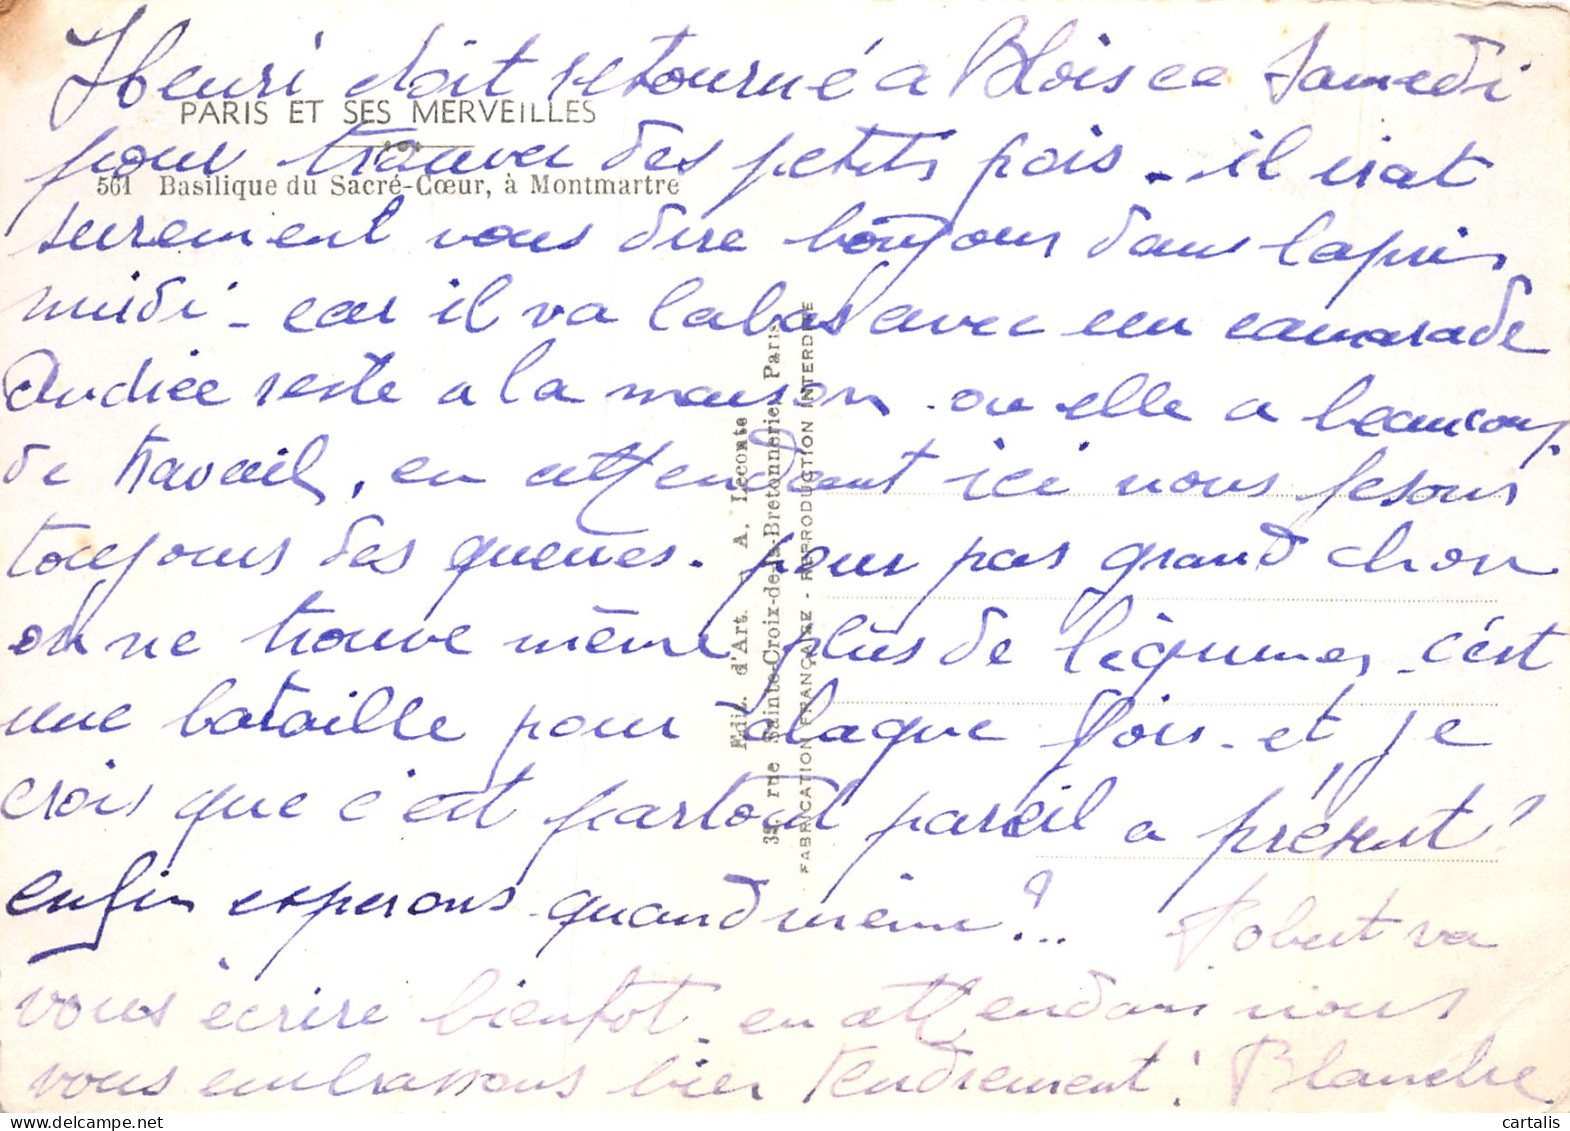 Henri doit retourné a Blois ce Samedi
PARIS ET SES MERVEILLES
pour trouver des petits pois - il irat
561 Basilique du Sacré-Cœur, à Montmartre
surement vous dire bonjour dans lapris
midi - car il va labas avec un camarade
Andrée reste a la maison ou elle a beaucoup
de travail, en attendant ici nous fesons
toujours des queues. pour pas grand chose
on ne trouve même plus de légumes - c'est
une bataille pour chaque fois - et je
crois que c'est partout pareil a présent!
enfin esperons quand même?...
Robert va
vous écrire bientot en attendant nous
vous embrassons bien tendrement! Blanche
Edit. d'Art. A. Leconte
38, rue Sainte-Croix-de-la-Bretonnerie, Paris
FABRICATION FRANÇAISE - REPRODUCTION INTERDITE
cartalis